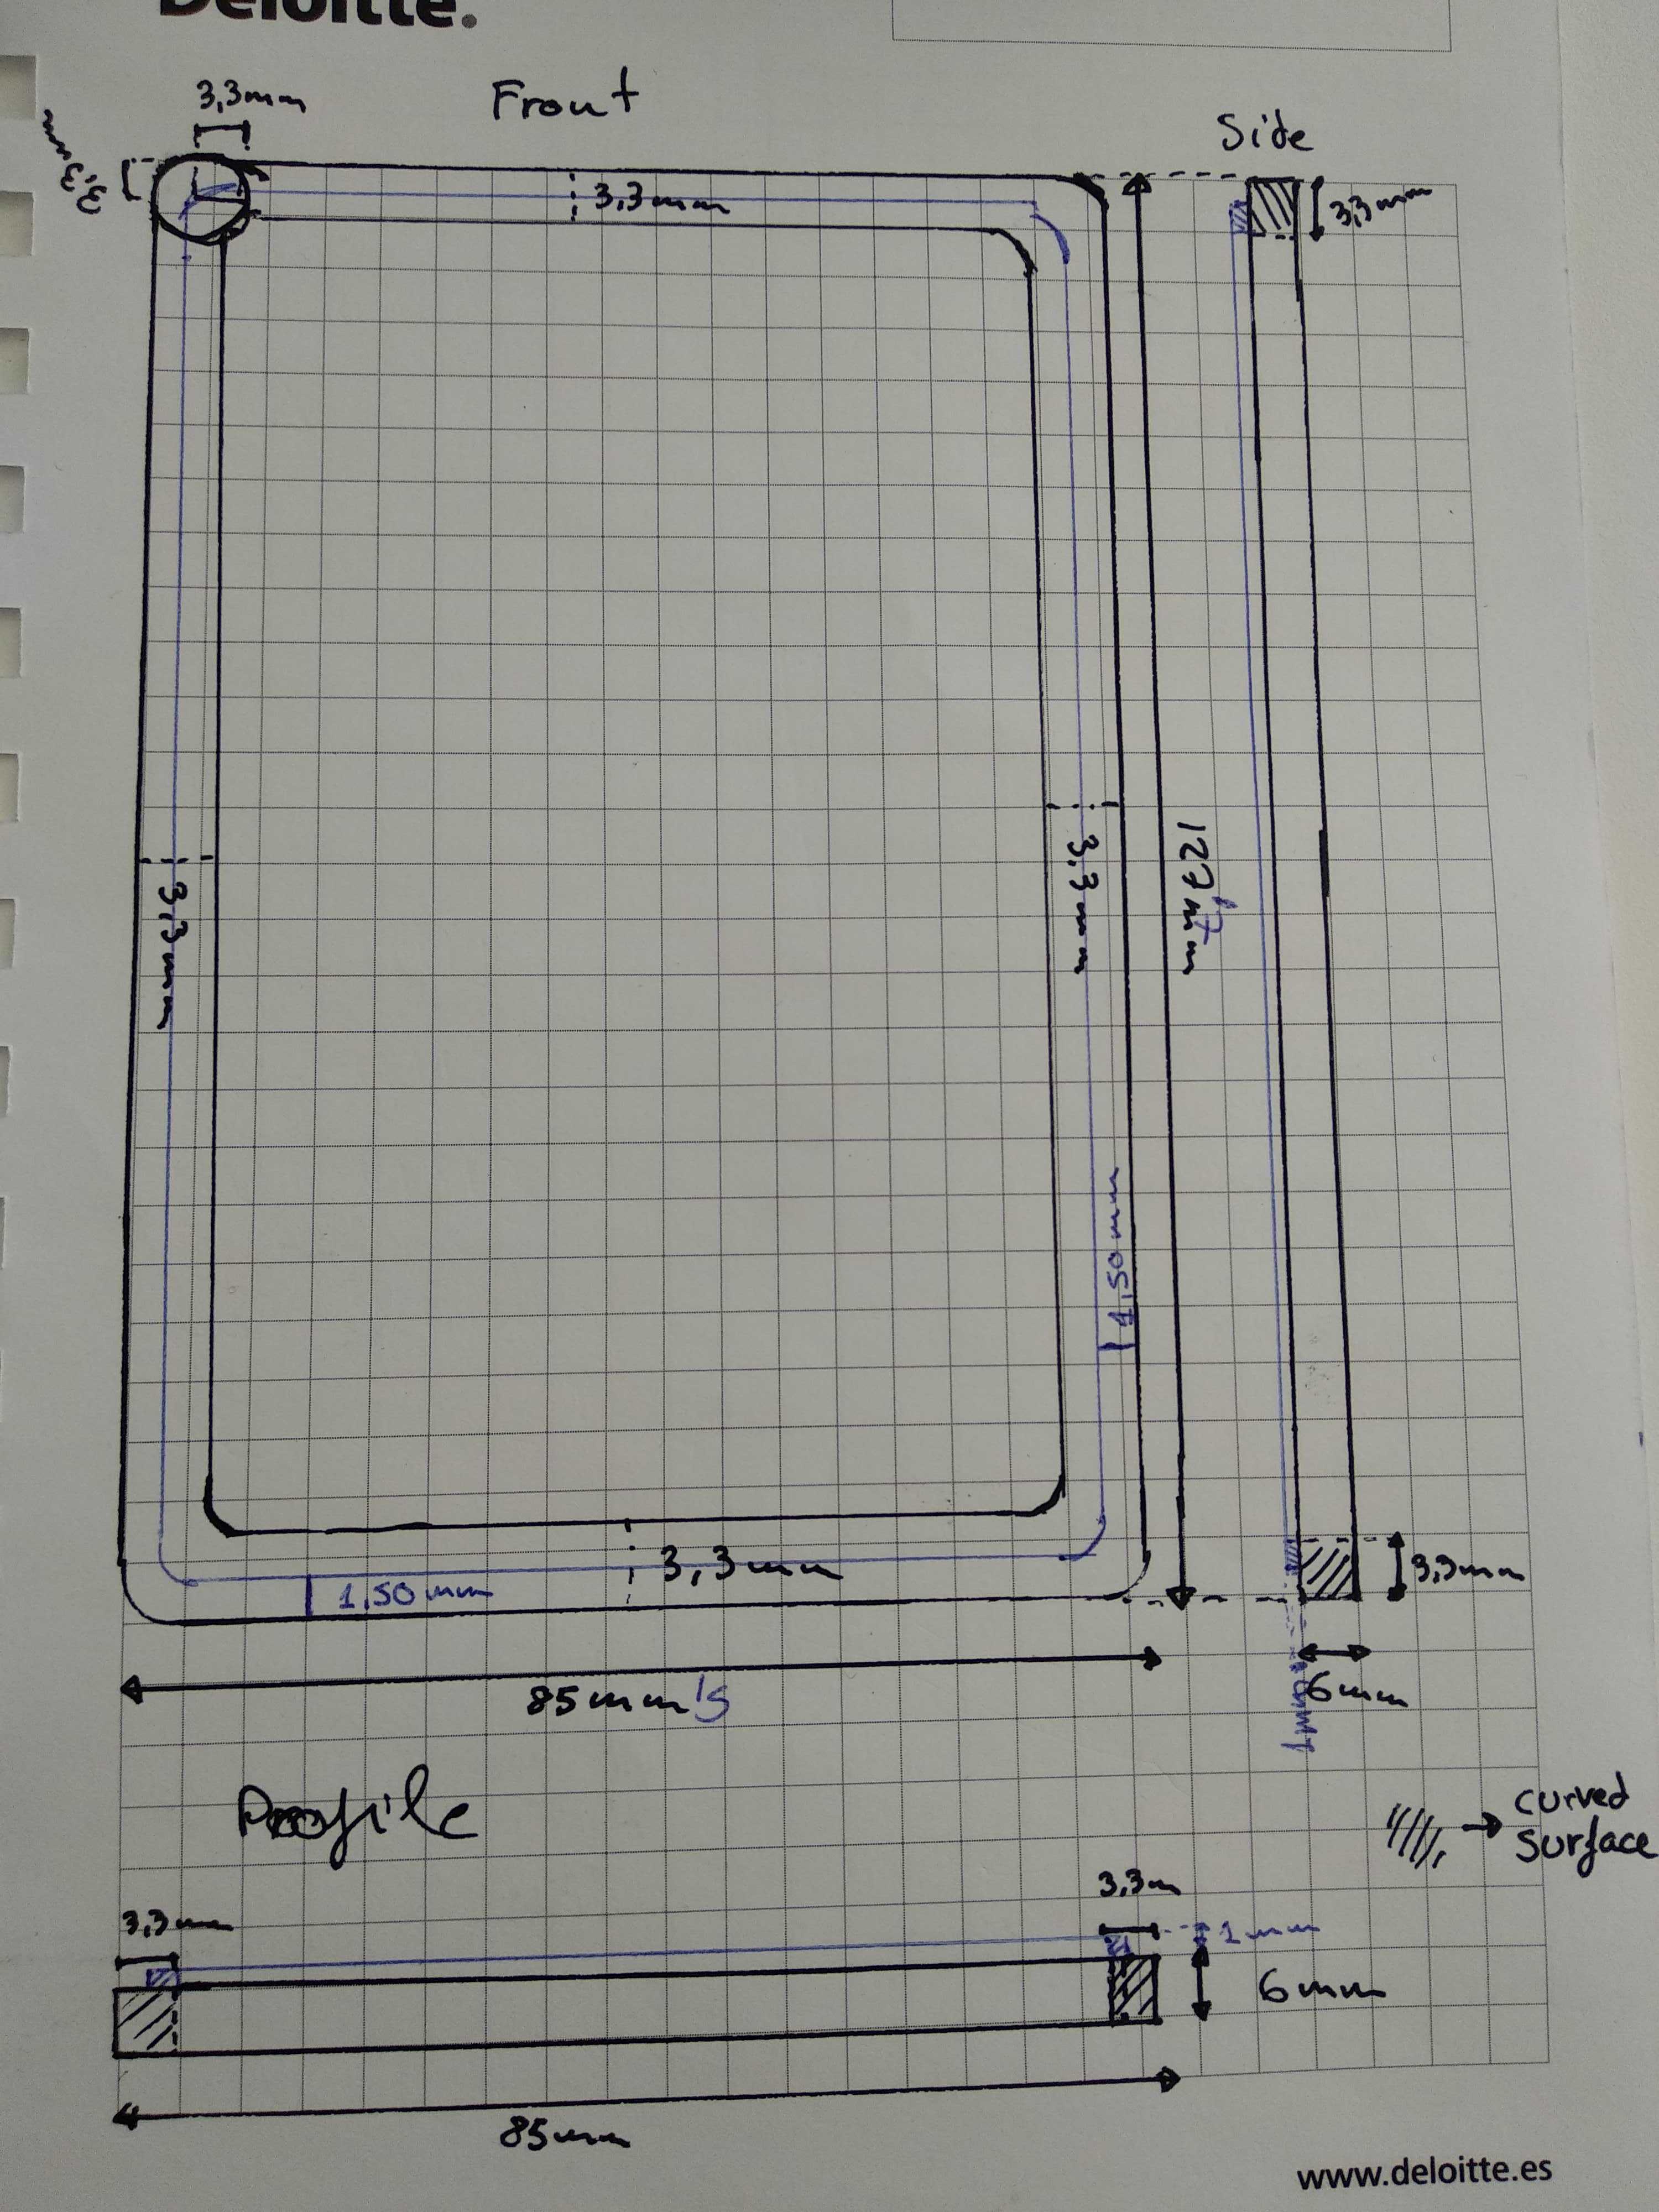 Deloitte.
3,3mm
Front
Side
3,3mm
3,3mm
3,3mm
3,3mm
3,3mm
127,7mm
1,50mm
3,3mm
1,50mm
3,3mm
85mm'5
6mm
1mm
Profile
curved
surface
3,3mm
3,3m
1mm
6mm
85mm
www.deloitte.es